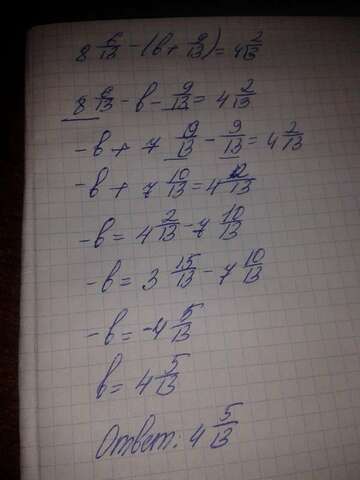 8 6/13 - (в + 9/13) = 4 2/13
8 6/13 - в - 9/13 = 4 2/13
-в + 7 19/13 - 9/13 = 4 2/13
-в + 7 10/13 = 4 2/13
-в = 4 2/13 - 7 10/13
-в = 3 15/13 - 7 10/13
-в = -4 5/13
в = 4 5/13
Ответ: 4 5/13